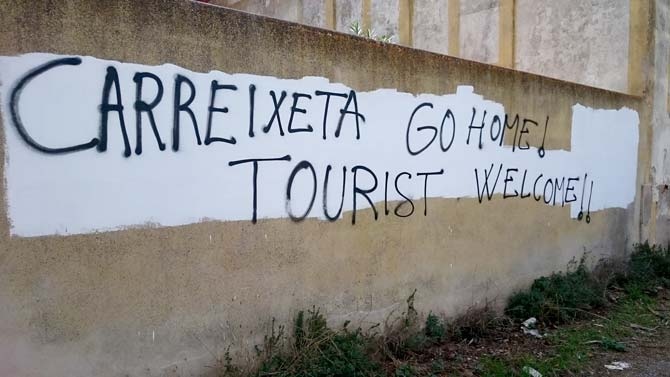 CARREIXETA GO HOME!
TOURIST WELCOME!!